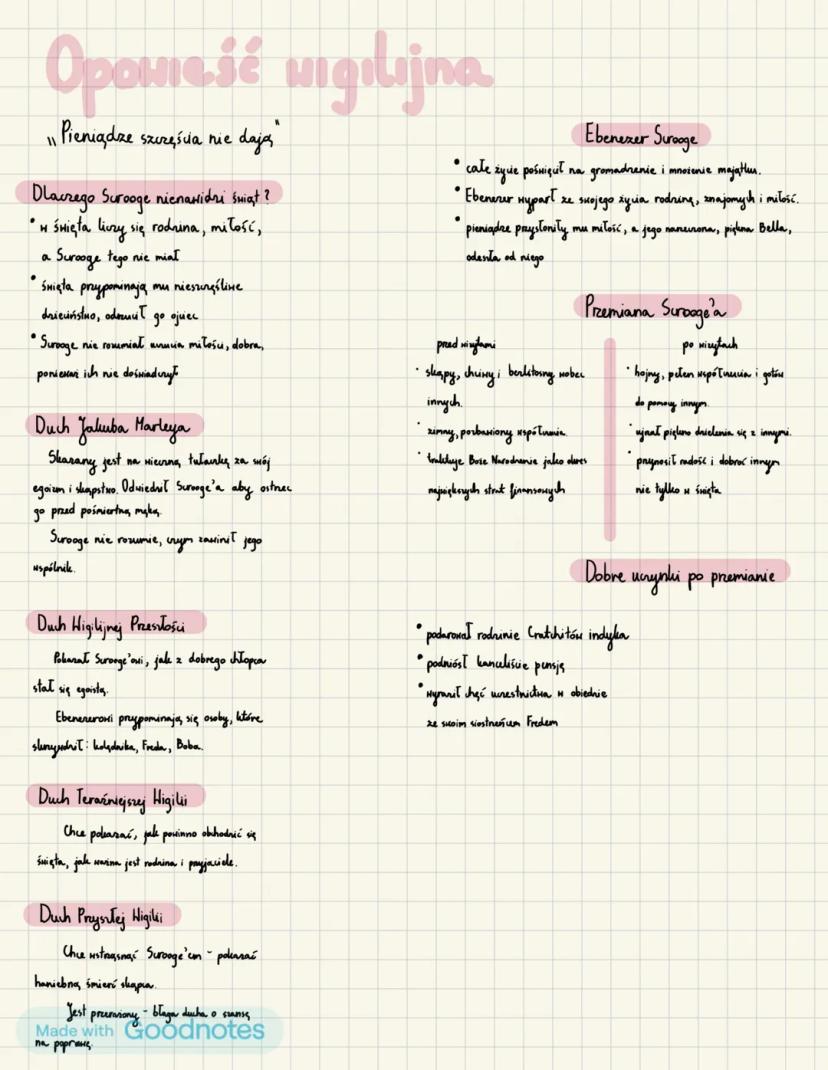 Opowieść wigilijna
„Pieniądze szczęścia nie dają"
Dlaczego Scrooge nienawidzi świąt?
• w święta liczy się rodzina, miłość,
a Scrooge tego nie miał
• święta przypominają mu nieszczęśliwe
dzieciństwo, odrzucił go ojciec
• Scrooge nie rozumiał uczucia miłości, dobra,
ponieważ ich nie doświadczył
Duch Jakuba Marleya
Skazany jest na wieczną tułaczkę za swój
egoizm i skąpstwo. Odwiedził Scrooge'a aby ostrzec
go przed pośmiertną męką.
Scrooge nie rozumie, czym zawinił jego
wspólnik.
Duch Wigilijnej Przeszłości
Pokazał Scrooge'owi, jak z dobrego chłopca
stał się egoistą.
Ebenezerowi przypominają się osoby, które
skrzywdził: kolędnika, Freda, Boba.
Duch Teraźniejszej Wigilii
Chce pokazać, jak powinno obchodzić się
święta, jak ważna jest rodzina i przyjaciele.
Duch Przyszłej Wigilii
Chce wstrząsnąć Scrooge'em - pokazać
haniebną śmierć skąpca.
Jest przerażony - błaga ducha o szansę
na poprawę.
Made with Goodnotes
Ebenezer Scrooge
• całe życie poświęcił na gromadzenie i mnożenie majątku.
• Ebenezer wyparł ze swojego życia rodzinę, znajomych i miłość.
• pieniądze przysłoniły mu miłość, a jego narzeczona, piękna Bella,
odeszła od niego
Przemiana Scrooge'a
przed wizytami
• skąpy, chciwy i bezlitosny wobec
innych.
• zimny, pozbawiony współczucia.
• traktuje Boże Narodzenie jako okres
największych strat finansowych
po wizytach
• hojny, pełen współczucia i gotów
do pomocy innym.
• ujrzał piękno dzielenia się z innymi.
• przynosił radość i dobroć innym
nie tylko w święta
Dobre uczynki po przemianie
• podarował rodzinie Cratchitów indyka
• podniósł kanceliście pensję
• wyraził chęć uczestnictwa w obiedzie
ze swoim siostrzeńcem Fredem